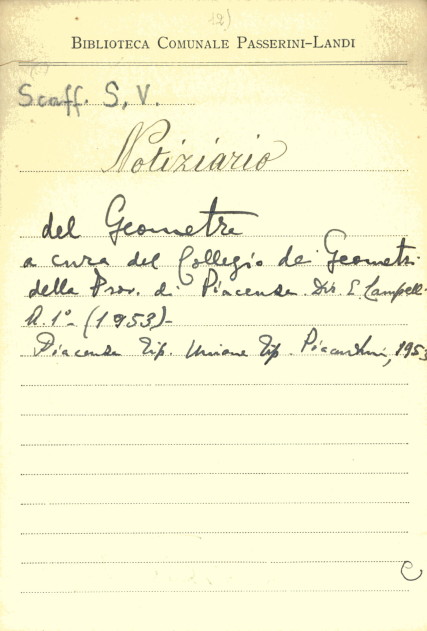 12)
BIBLIOTECA COMUNALE PASSERINI-LANDI
Scaff. S. V.
Notiziario
del Geometra
a cura del Collegio dei Geometri
della Prov. di Piacenza. Dir. E. Lampell-
A. 1º- (1953)-
Piacenza Tip. Unione Tip. Piacentini, 1953